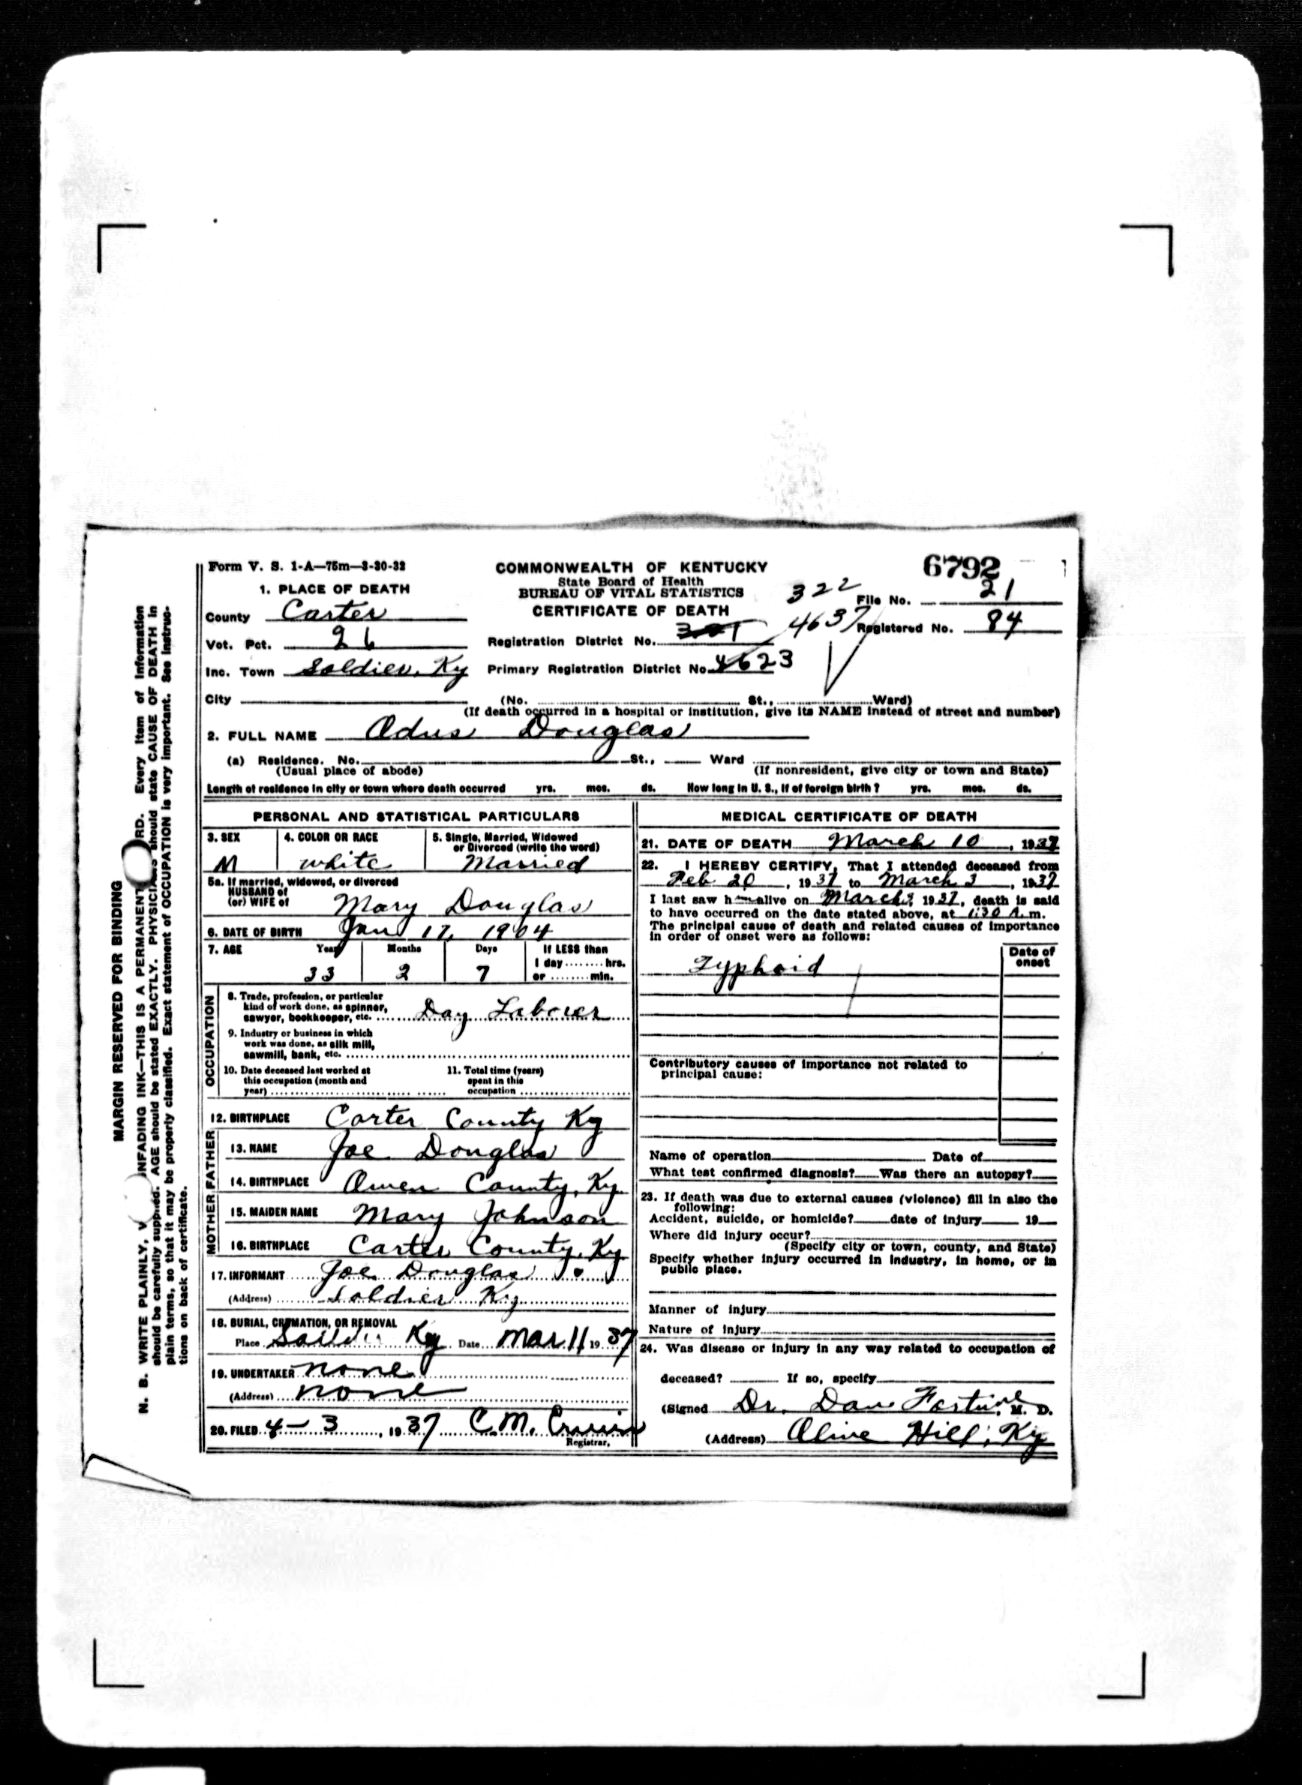 6792
Form V. S. 1-A—75m—3-30-32
COMMONWEALTH OF KENTUCKY
State Board of Health
BUREAU OF VITAL STATISTICS
CERTIFICATE OF DEATH
322
4637
File No. 21
Registered No. 84
1. PLACE OF DEATH
County Carter
Vot. Pct. 26
Inc. Town Soldier, Ky
City
Registration District No.
Primary Registration District No. 4623
(No. St., Ward)
(If death occurred in a hospital or institution, give its NAME instead of street and number)
2. FULL NAME Adus Douglas
(a) Residence. No. St., Ward
(Usual place of abode) (If nonresident, give city or town and State)
Length of residence in city or town where death occurred yrs. mos. ds. How long in U. S., if of foreign birth? yrs. mos. ds.
PERSONAL AND STATISTICAL PARTICULARS
3. SEX M
4. COLOR OR RACE white
5. Single, Married, Widowed
or Divorced (write the word)
Married
5a. If married, widowed, or divorced
HUSBAND of
(or) WIFE of Mary Douglas
6. DATE OF BIRTH Jan 17, 1904
7. AGE Years Months Days If LESS than
1 day........hrs.
33 2 7 or ........min.
OCCUPATION
8. Trade, profession, or particular
kind of work done, as spinner,
sawyer, bookkeeper, etc. Day Laborer
9. Industry or business in which
work was done, as silk mill,
sawmill, bank, etc.
10. Date deceased last worked at
this occupation (month and
year)
11. Total time (years)
spent in this
occupation
12. BIRTHPLACE Carter County Ky
FATHER
13. NAME Joe Douglas
14. BIRTHPLACE Owen County, Ky.
MOTHER
15. MAIDEN NAME Mary Johnson
16. BIRTHPLACE Carter County, Ky
17. INFORMANT Joe Douglas
(Address) Soldier Ky
18. BURIAL, CREMATION, OR REMOVAL
Place Soldier Ky Date Mar 11 1937
19. UNDERTAKER none
(Address) none
20. FILED 4-3, 1937 C.M.
Registrar.
MEDICAL CERTIFICATE OF DEATH
21. DATE OF DEATH March 10, 1937
22. I HEREBY CERTIFY, That I attended deceased from
Feb 20, 1937 to March 3, 1937
I last saw h alive on March 3, 1937, death is said
to have occurred on the date stated above, at 1:30 A.m.
The principal cause of death and related causes of importance
in order of onset were as follows:
Date of
onset
Typhoid
Contributory causes of importance not related to
principal cause:
Name of operation Date of
What test confirmed diagnosis? Was there an autopsy?
23. If death was due to external causes (violence) fill in also the
following:
Accident, suicide, or homicide? date of injury 19
Where did injury occur?
(Specify city or town, county, and State)
Specify whether injury occurred in industry, in home, or in
public place.
Manner of injury
Nature of injury
24. Was disease or injury in any way related to occupation of
deceased? If so, specify
(Signed Dr. Dan Fortune, M. D.
(Address) Olive Hill, Ky
MARGIN RESERVED FOR BINDING
N. B. WRITE PLAINLY, UNFADING INK—THIS IS A PERMANENT RECORD. Every item of information
should be carefully supplied. AGE should be stated EXACTLY. PHYSICIANS should state CAUSE OF DEATH in
plain terms, so that it may be properly classified. Exact statement of OCCUPATION is very important. See instruc-
tions on back of certificate.